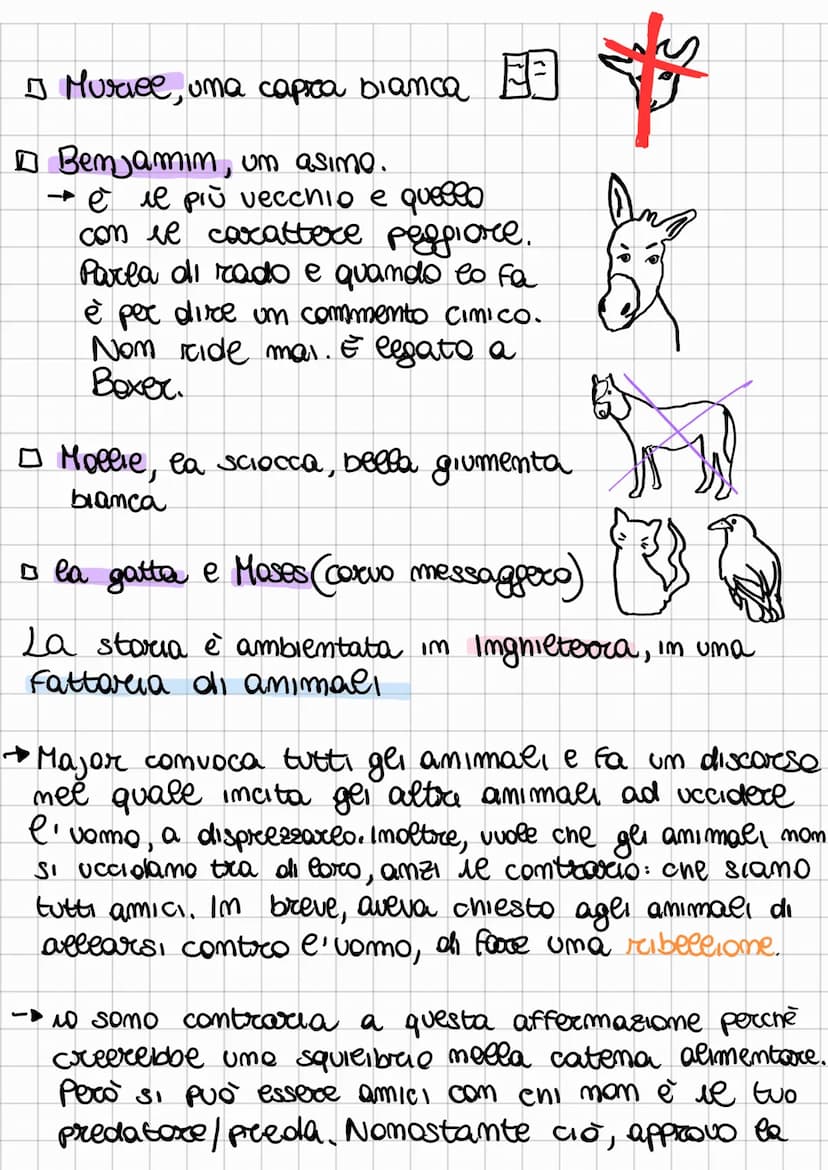 □ Muriel, una capra bianca
□ Benjamin, un asino.
→ è il più vecchio e quello
con il carattere peggiore.
Parla di rado e quando lo fa
è per dire un commento cinico.
Non ride mai. È legato a
Boxer.
□ Mollie, la sciocca, bella giumenta
bianca
□ la gatta e Moses (corvo messaggero)
La storia è ambientata in Inghilterra, in una
fattoria di animali
→ Major convoca tutti gli animali e fa un discorso
nel quale incita gli altri animali ad uccidere
l'uomo, a disprezzarlo. Inoltre, vuole che gli animali non
si uccidano tra di loro, anzi il contrario: che siano
tutti amici. In breve, aveva chiesto agli animali di
allearsi contro l'uomo, di fare una ribellione.
→ io sono contraria a questa affermazione perchè
creerebbe uno squilibrio nella catena alimentare.
Però si può essere amici con chi non è il tuo
predatore/preda. Nonostante ciò, approvo la